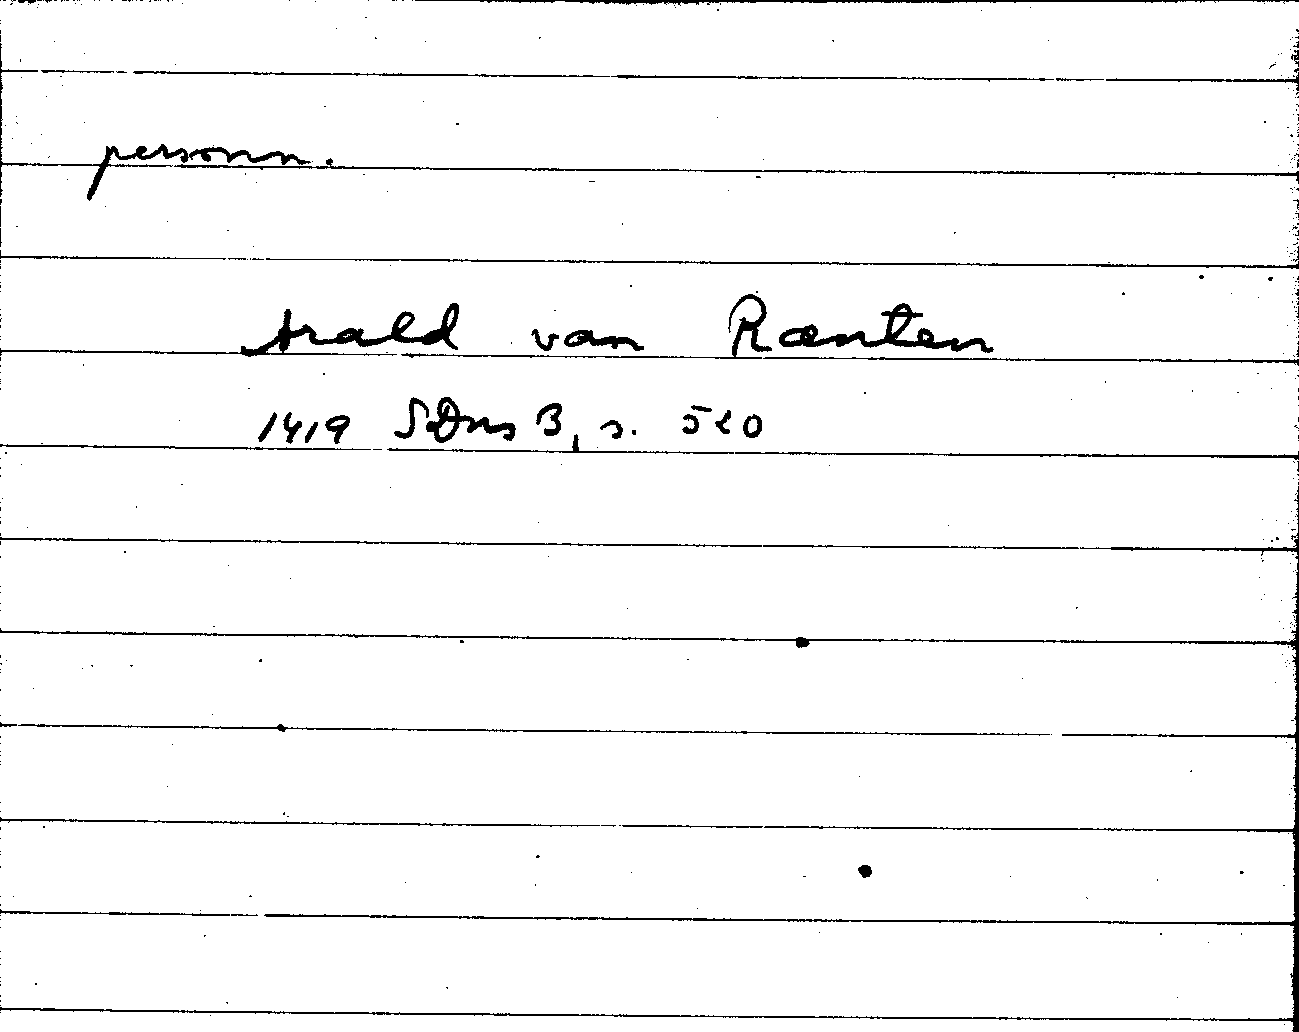 personn.
Arald van Rænten
1419 SDns B, s. 520